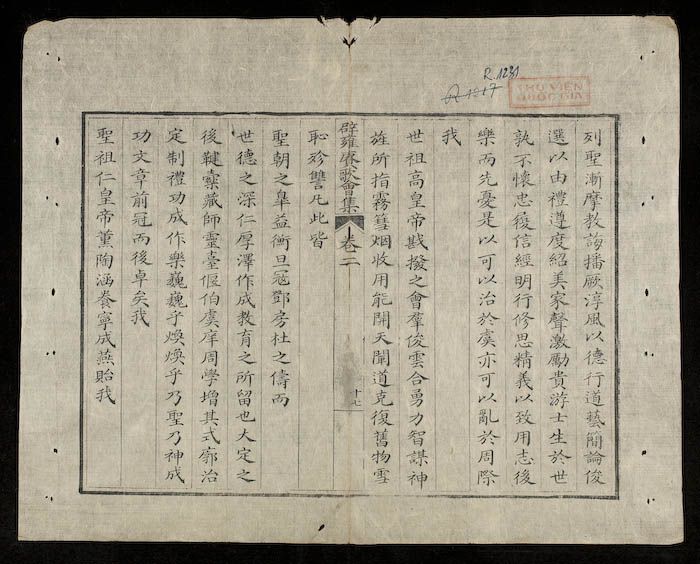 R.1231
R 1917
THƯ VIỆN
QUỐC GIA
列聖漸摩教誨播厥淳風以德行道藝簡論俊
選以由禮遵度紹美家聲激勵貴游士生於世
孰不懷忠履信經明行修思精義以致用志後
樂而先憂是以可以治於虞亦可以亂於周際
我
世祖高皇帝戡撥之會羣俊雲合勇力智謀神
旌所指霧彗烟收用能開天闡道克復舊物雪
辟雍賡歌會集 卷二 十七
恥殄讐凡此皆
聖朝之皐益衡旦寇鄧房杜之儔而
世德之深仁厚澤作成教育之所留也大定之
後鞬櫜藏師靈臺偃伯虞庠周學增其式廓治
定制禮功成作樂巍巍乎煥煥乎乃聖乃神成
功文章前冠而後卓矣我
聖祖仁皇帝薰陶涵養寧成燕貽我